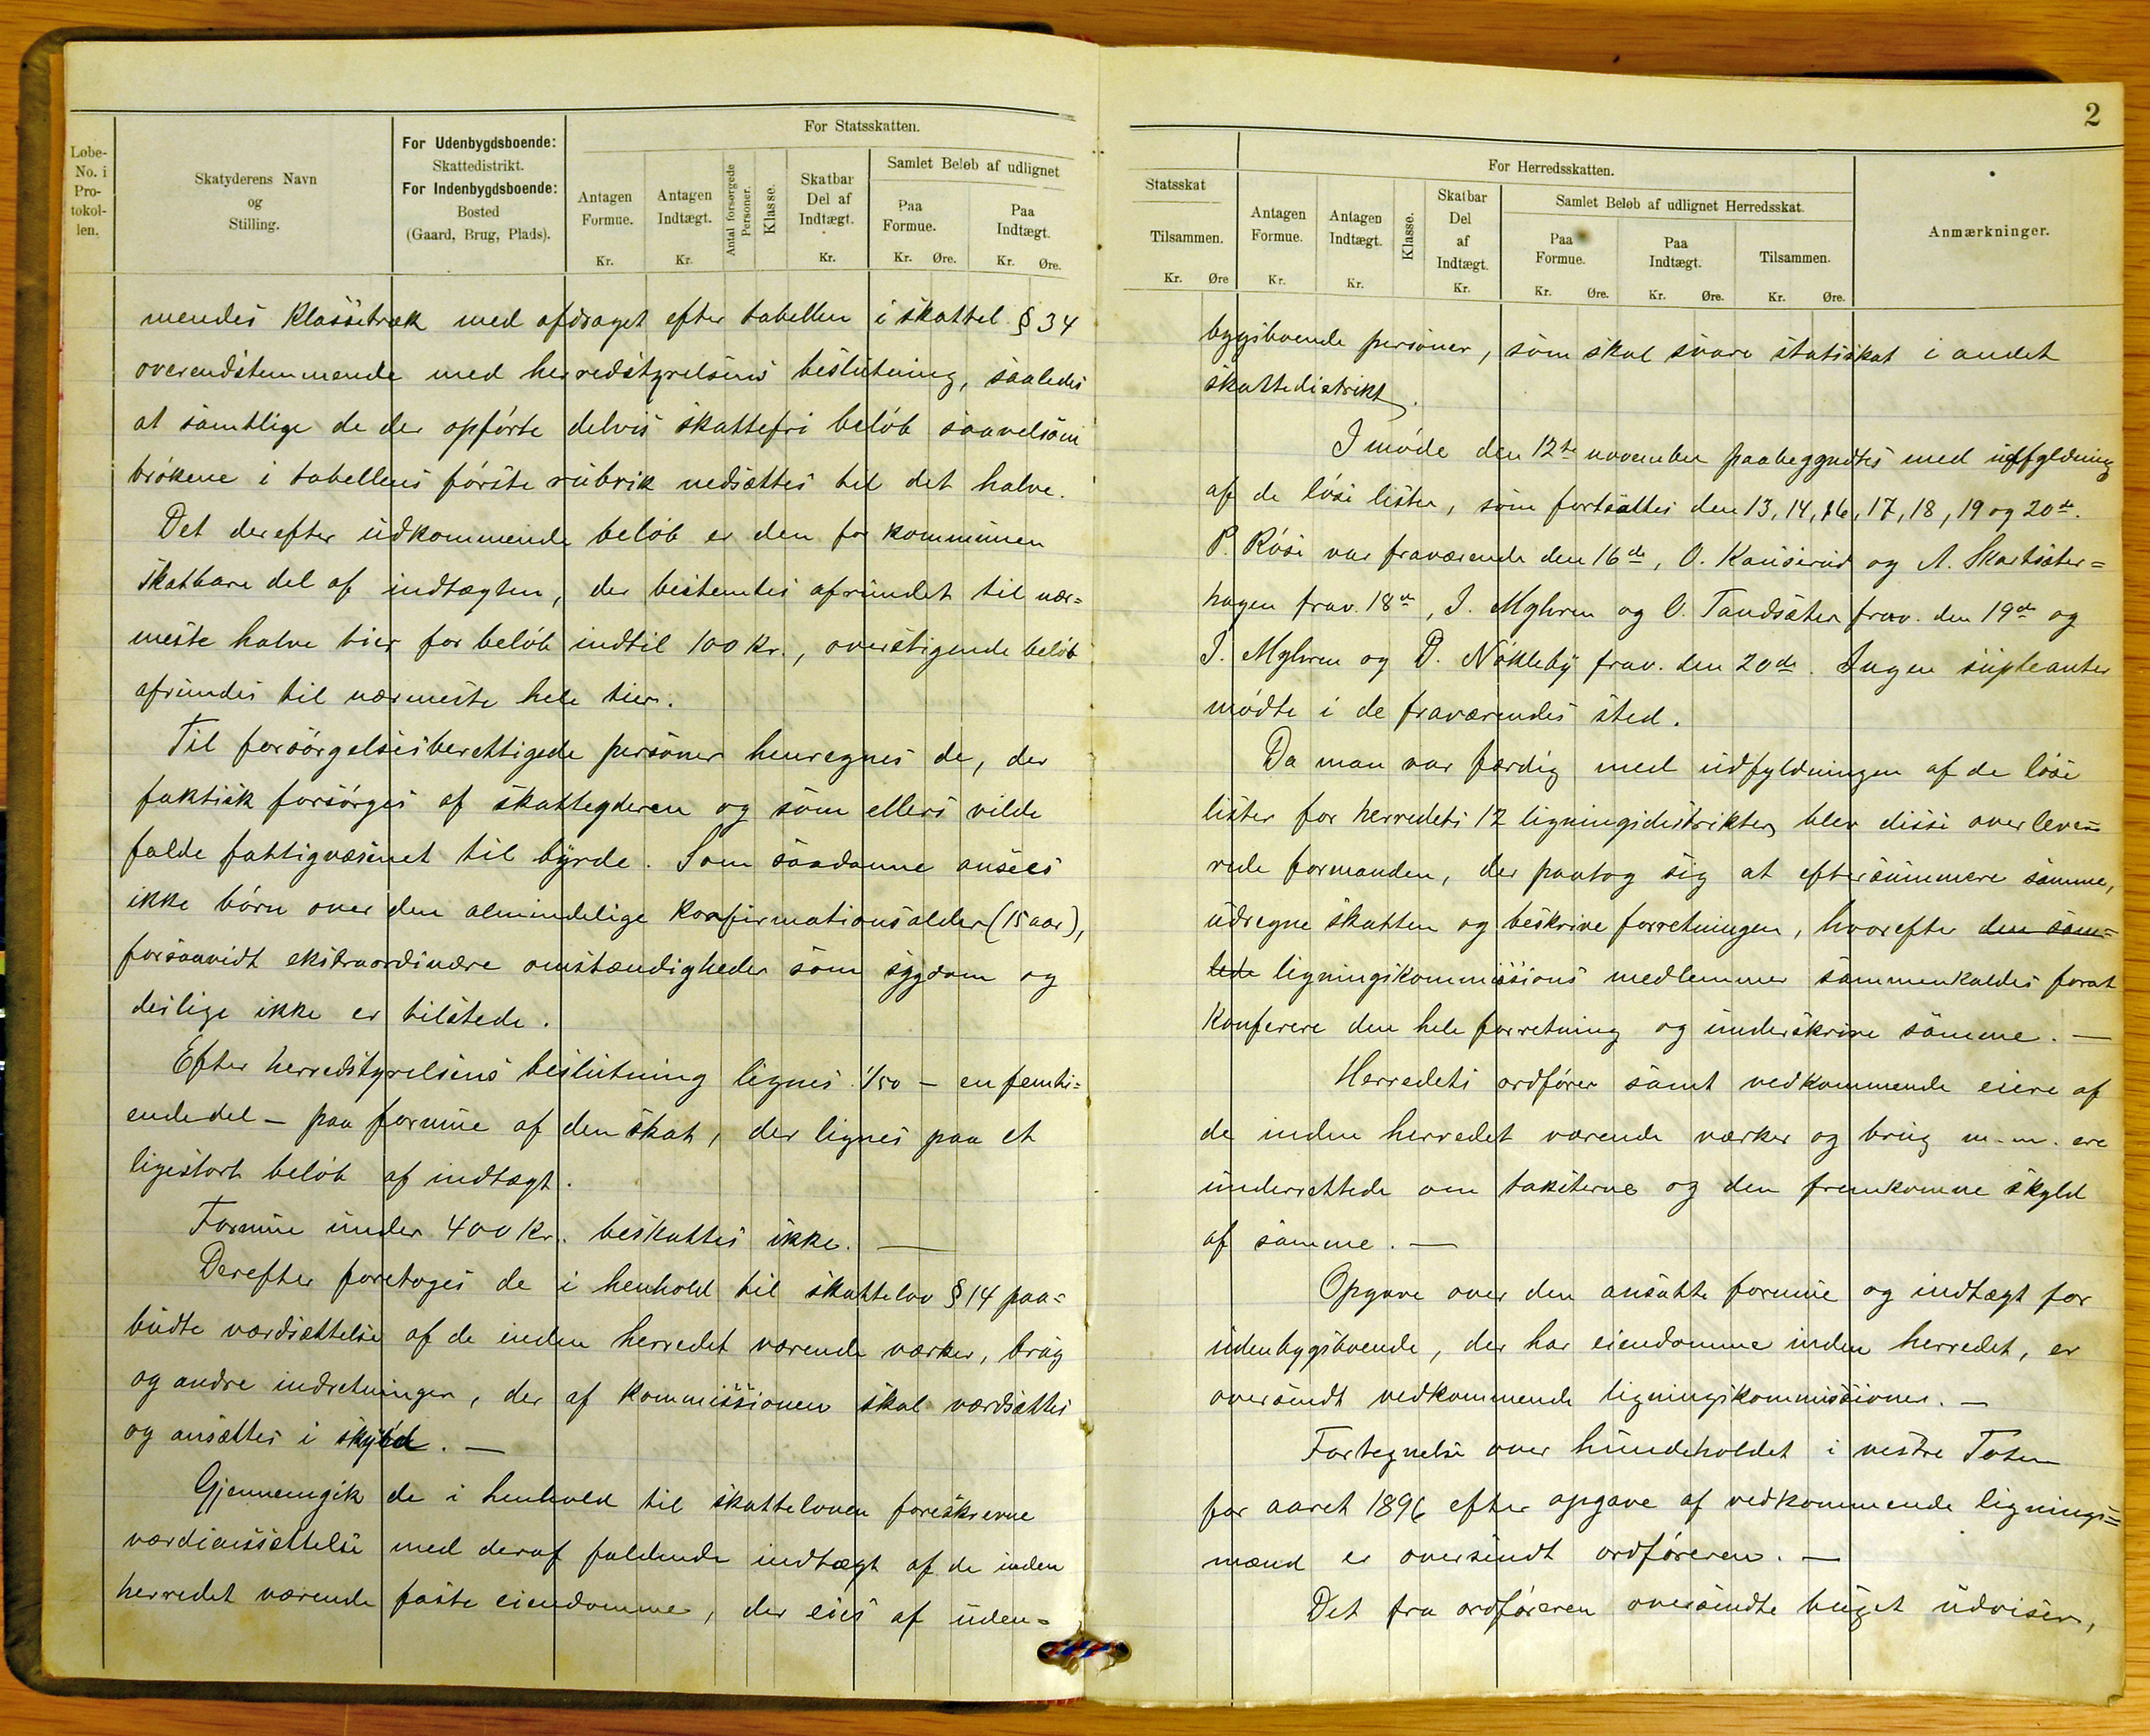 Løbe-No. i Protokollen.
Skatyderens Navn og Stilling.
For Udenbygdsboende: Skattedistrikt. For Indenbygdsboende: Bosted (Gaard, Brug, Plads).
For Statsskatten.
Antagen Formue. Kr.
Antagen Indtægt. Kr.
Antal forsørgede Personer.
Klasse.
Skatbar Del af Indtægt. Kr.
Samlet Beløb af udlignet
Paa Formue. Kr. Øre.
Paa Indtægt. Kr. Øre.
mendes Klassetræk med afdraget efter tabellen i skattel. § 34
overendstemmende med herredstyrelsens beslutning, saaledes
at samtlige de der opførte delvis skattefri beløb saavelsom
brøkene i tabellens første rubrik nedsættes til det halve.
Det derefter udkommende beløb er den for kommunen
skatbare del af indtægten, der bestemtes afrundet til nær=
meste halve tier for beløb indtil 100 kr., overstigende beløb
afrundes til nærmeste hele tier.
Til forsørgelsesberettigede personer henregnes de, der
faktisk forsørges af skatteyderen og som ellers vilde
falde fattigvæsenet til byrde. Som saadanne ansees
ikke børn over den almindelige konfirmationsalder (15 aar),
forsaavidt ekstraordinære omstændigheder som sygdom og
deslige ikke er tilstede.
Efter herredstyrelsens beslutning lignes 1/50 – en femti=
endedel – paa formue af den skat, der lignes paa et
ligestort beløb af indtægt.
Formue under 400 Kr. beskattes ikke. —
Derefter foretoges de i henhold til skattelov § 14 paa=
budte værdsættelse af de inden herredet værende værker, brug
og andre indretninger, der af kommissionen skal værdsættes
og ansættes i skyld. —
Gjennemgik de i henhold til skatteloven foreskrevne
værdiansættelse med deraf faldende indtægt af de inden
herredet værende faste eiendomme, der eies af uden=
2
Statsskat Tilsammen. Kr. Øre
For Herredsskatten.
Antagen Formue. Kr.
Antagen Indtægt. Kr.
Klasse.
Skatbar Del af Indtægt. Kr.
Samlet Beløb af udlignet Herredsskat.
Paa Formue. Kr. Øre.
Paa Indtægt. Kr. Øre.
Tilsammen. Kr. Øre.
Anmærkninger.
bygsboende personer, som skal svare statsskat i andet
skattedistrikt.
I møde den 12te november paabegyndtes med udfyldning
af de løse lister, som fortsattes den 13, 14, 16, 17, 18, 19 og 20de.
P. Røise var fraværende den 16de, O. Kauserud og A. Skartsæter=
hagen frav. 18de, J. Myhren og O. Tandsæter frav. den 19de og
J. Myhren og P. Nøkleby frav. den 20de. Ingen supleanter
mødte i de fraværendes sted.
Da man var færdig med udfyldningen af de løse
lister for herredets 12 ligningsdistrikter, blev disse overleve=
rede formanden, der paatog sig at eftersummere samme,
udregne skatten og beskrive forretningen, hvorefter den sam=
lede ligningskommissions medlemmer sammenkaldes forat
konferere den hele forretning og underskrive samme. —
Herredets ordfører samt vedkommende eiere af
de inden herredet værende værker og brug m.m. ere
underrettede om taksterne og den fremkomne skyld
af samme. —
Opgave over den ansatte formue og indtægt for
udenbygsboende, der har eiendomme inden herredet, er
oversendt vedkommende ligningskommissioner. —
Fortegnelse over hundeholdet i vestre Toten
for aaret 1896 efter opgave af vedkommende lignings=
mænd er oversendt ordføreren. —
Det fra ordføreren oversendte buget udviser,